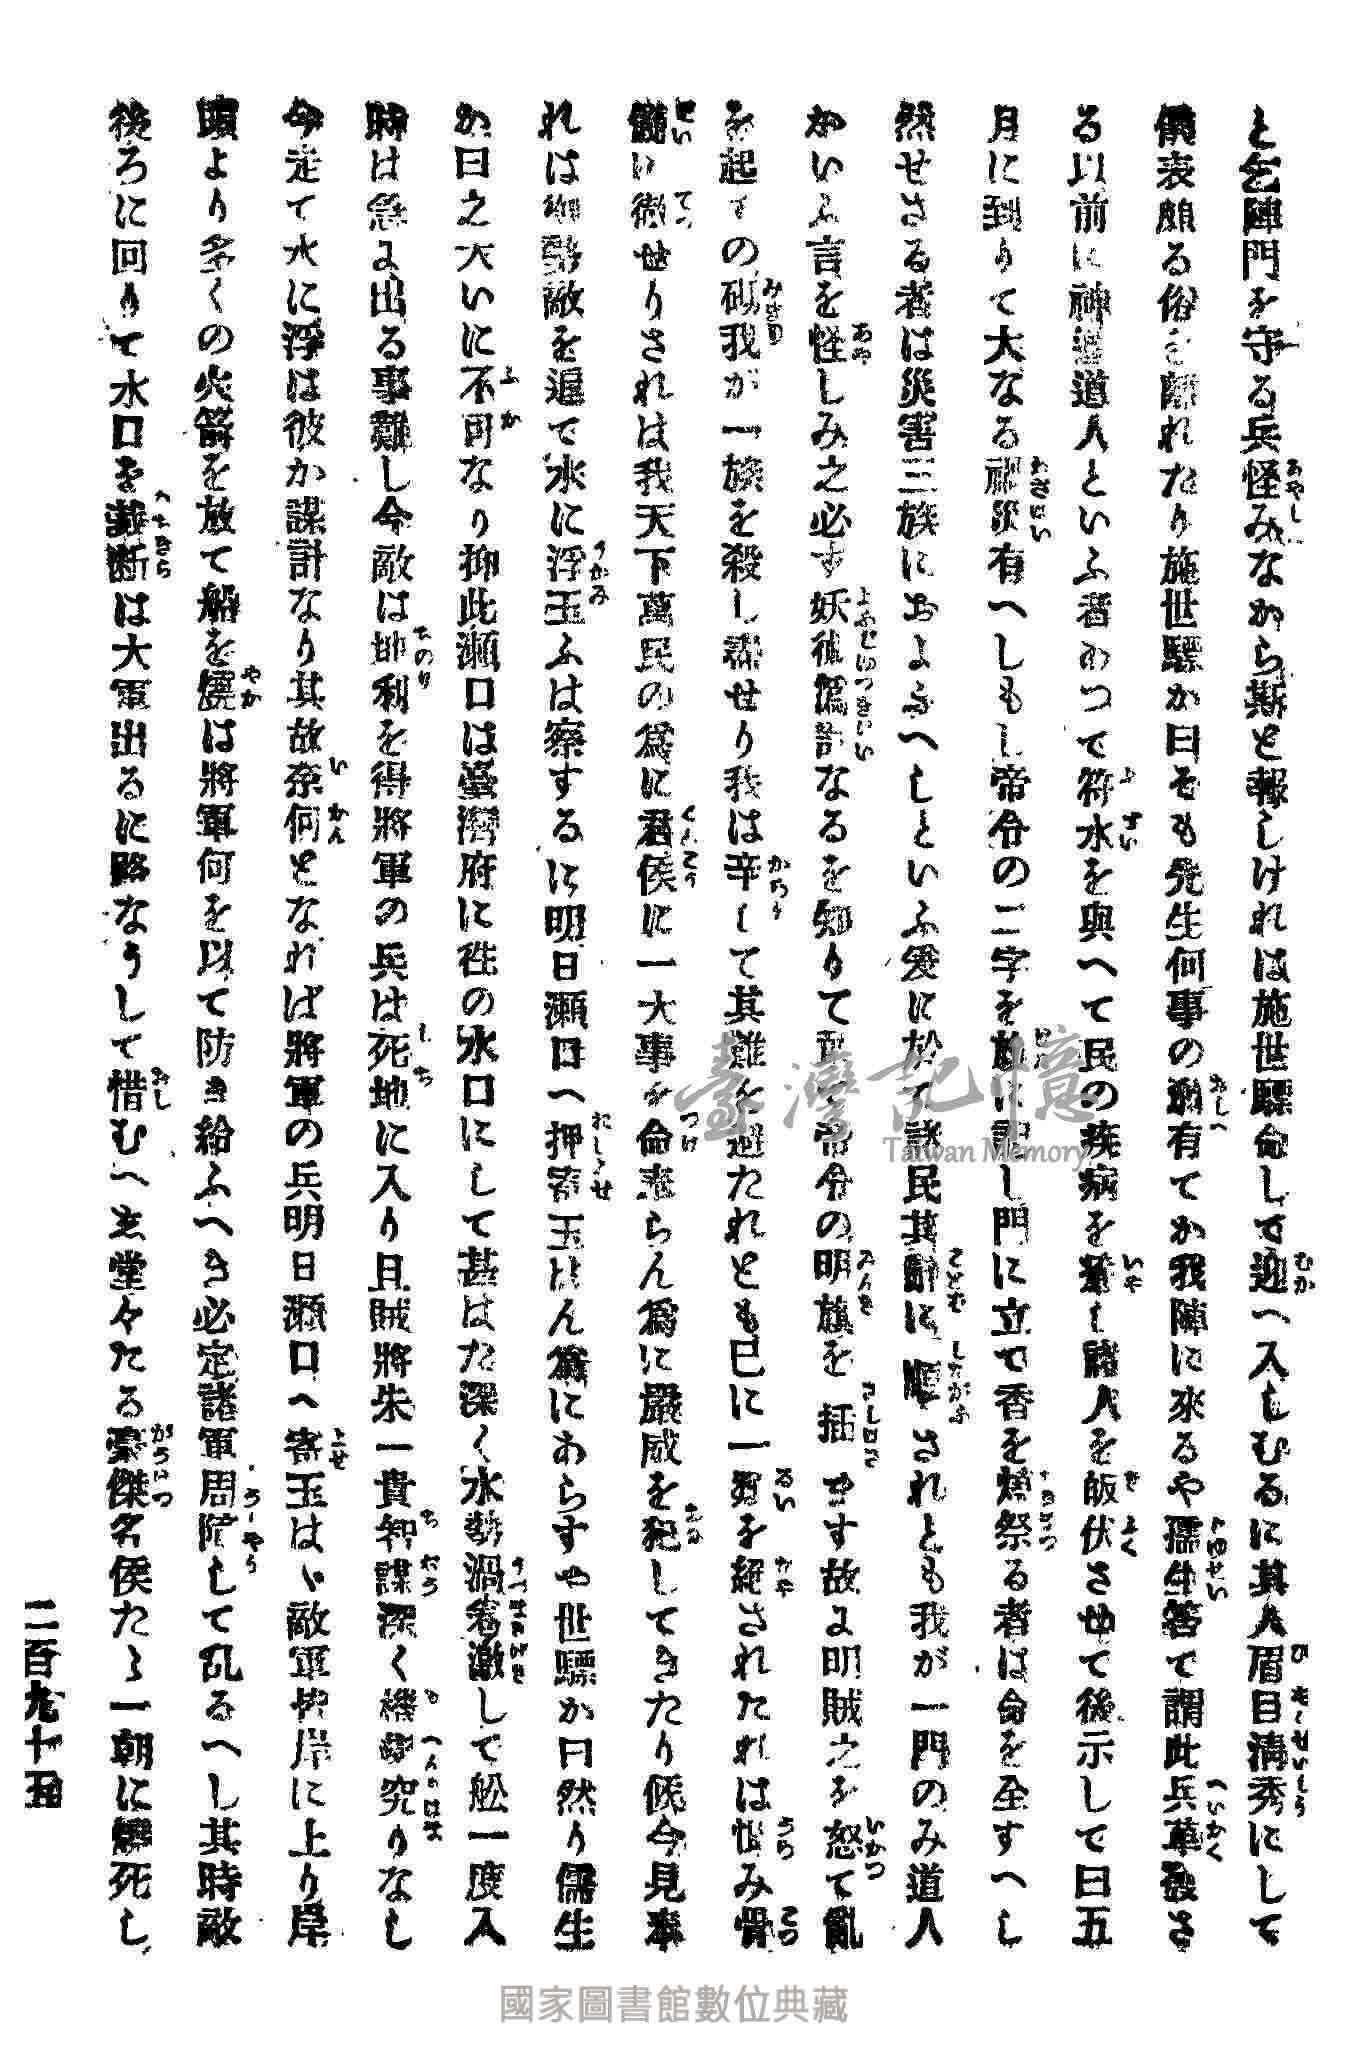 と乞陣門を守る兵怪みなから斯と報しけれは施世驃命して迎へ入しむるに其人眉目淸秀にして
儀表頗る俗を離れたり施世驃か曰そも先生何事の敎有てか我陣に來るや孺生答て謂此兵革發さ
る以前に神道人といふ者あつて符水を與へて民の疾病を癒し諸人を皈伏させて後示して曰五
月に到りて大なる禍災有へしもし帝令の二字を旗に記し門に立て香を祭る者は命を全すへし
然せさる者は災害三族におよふへしといふ爰に於て諸民其辭に順されとも我が一門のみ道人
かいふ言を怪しみ之必す妖術僞計なるを知りて帝令の明旗を插せす故よ明賊之を怒て亂
を起すの砌我が一族を殺し盡せり我は辛して其難を避たれとも已に一類を絕されたれは恨み骨
髓に徹せりされは我天下萬民の爲に君侯に一大事を命奉らん爲に嚴威を犯してきたり候今見奉
れは御勢敵を退て水に浮玉ふは察するに明日瀨口へ押寄玉はん爲にあらすや世驃か曰然り儒生
か曰之大いに不可なり抑此瀨口は臺灣府に の水口にして甚はた深く水勢渦卷激して舩一度入
時は急よ出る事難し今敵は地利を得將軍の兵は死地に入り且賊將朱一貴智謀深く機 究りなし
今走て水に浮は彼か謀計なり其故奈何となれば將軍の兵明日瀨口へ寄玉はゝ敵軍 岸に上り岸
頭より多くの火箭を放て船を燒は將軍何を以て防き給ふへき必定諸軍周 して亂るへし其時敵
後ろに回りて水口を截斷は大軍出るに路なうして惜むへき堂々たる豪傑名侯たち一朝に 死し
二百九十五
臺灣記憶
Taiwan Memory
國家圖書館數位典藏